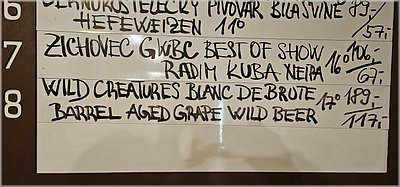 6 PIVOVAR BÍLÁ SVINĚ 89,-
HEFEWEIZEN 11° 57,-
7 ZICHOVEC GWBC BEST OF SHOW 16° 106,-
RADIM KUBA NEIPA 67,-
8 WILD CREATURES BLANC DE BROTE 17° 189,-
BARREL AGED GRAPE WILD BEER 117,-